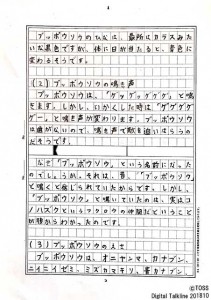 ブッポウソウのたまは、普段はカラスみたい
な黒色ですが、体に日が当たると、青色に
変わるそうです。
(2)ブッポウソウの鳴き声
ブッポウソウは、「ゲッゲッゲゲゲ」と鳴
きます。しかし、いかくした時は「ゲゲゲゲ
ゲー」と鳴き声が変わります。ブッポウソウ
は歯がないので、鳴き声で敵を追いはらうの
だそうです。
なぜ「ブッポウソウ」という名前になった
のでしょうか。それは、昔、「ブッポウソウ」
と鳴くと信じられていたからです。しかし、
「ブッポウソウ」と鳴いていたのは、実はコ
ノハズクというフクロウの仲間だということ
が分かりました。
(3)ブッポウソウのえさ
ブッポウソウは、オニヤンマ、カナブン、
ニイニイゼミ、ミズカマキリ、青カナブン、
©TOSS
Digital Talkline 201810